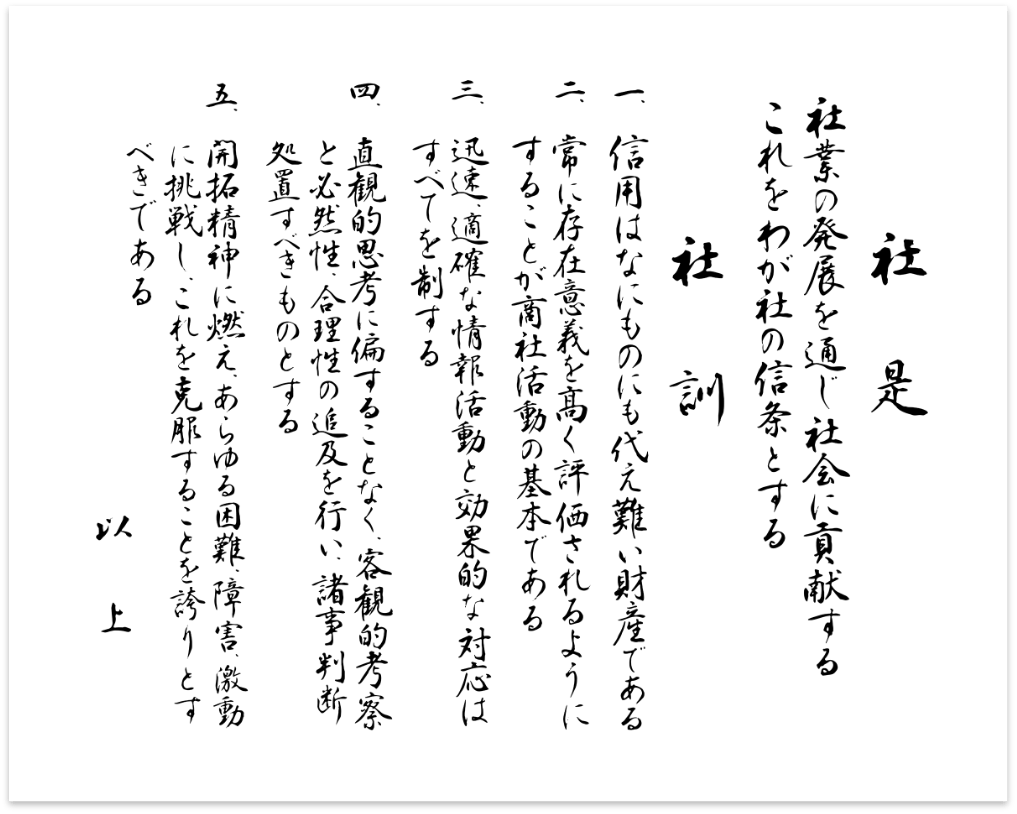 社是
社業の発展を通じ社会に貢献する
これをわが社の信条とする
社訓
一、信用はなにものにも代え難い財産である
二、常に存在意義を高く評価されるように
することが商社活動の基本である
三、迅速、適確な情報活動と効果的な対応は
すべてを制する
四、直観的思考に偏することなく、客観的考察
と必然性、合理性の追及を行い、諸事判断
処置すべきものとする
五、開拓精神に燃え、あらゆる困難、障害、激動
に挑戦し、これを克服することを誇りとす
べきである
以上